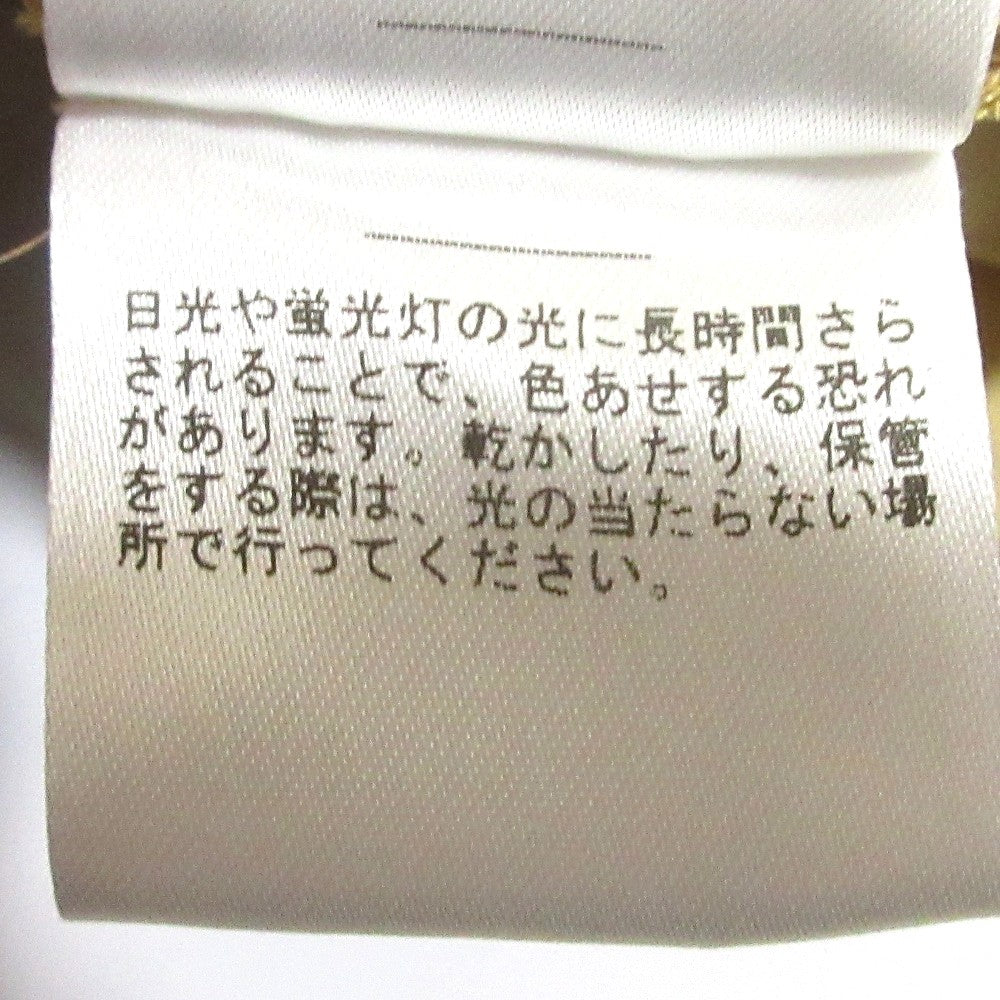 日光や蛍光灯の光に長時間さら
されることで、色あせする恐れ
があります。乾かしたり、保管
をする際は、光の当たらない場
所で行ってください。